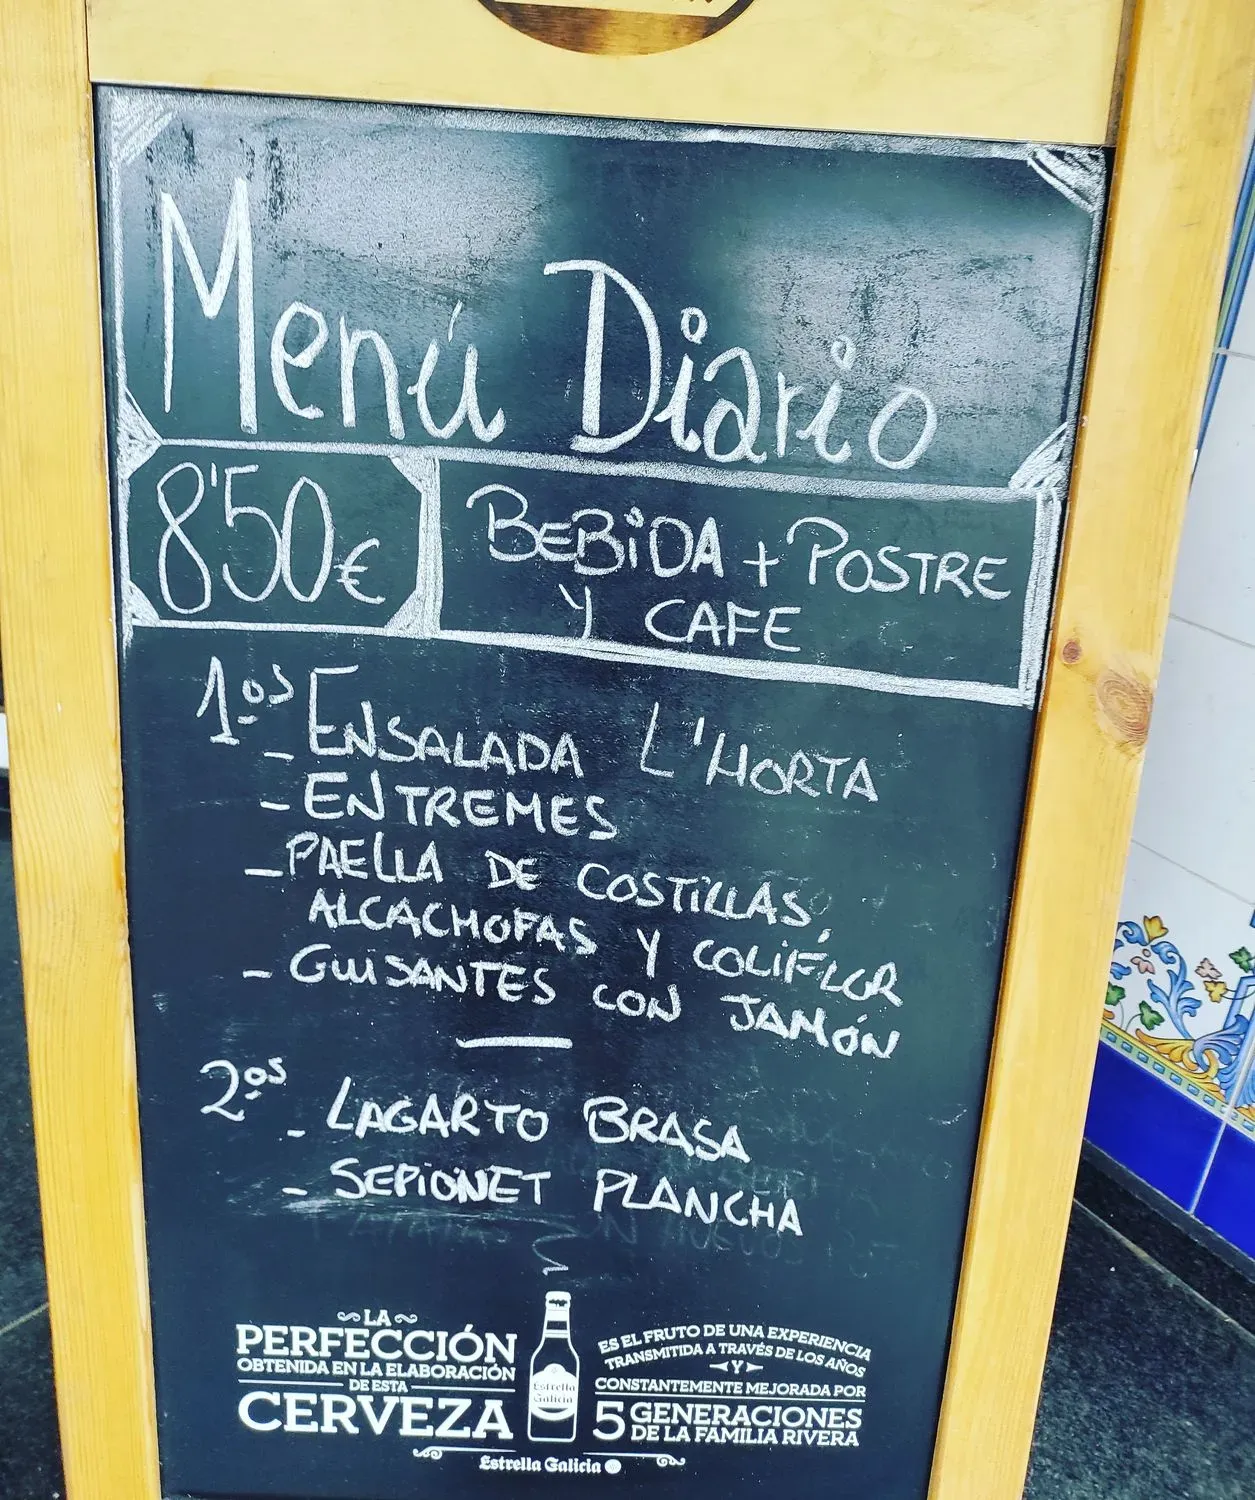 Menú Diario
8'50€
BEBIDA + POSTRE
Y CAFE
1os
- ENSALADA L'HORTA
- ENTREMES
- PAELLA DE COSTILLAS,
ALCACHOFAS Y COLIFLOR
- GUISANTES CON JAMÓN
2os
- LAGARTO BRASA
- SEPIONET PLANCHA
LA
PERFECCIÓN
OBTENIDA EN LA ELABORACIÓN
DE ESTA
CERVEZA
Estrella
Galicia
ES EL FRUTO DE UNA EXPERIENCIA
TRANSMITIDA A TRAVÉS DE LOS AÑOS
Y
CONSTANTEMENTE MEJORADA POR
5 GENERACIONES
DE LA FAMILIA RIVERA
Estrella Galicia